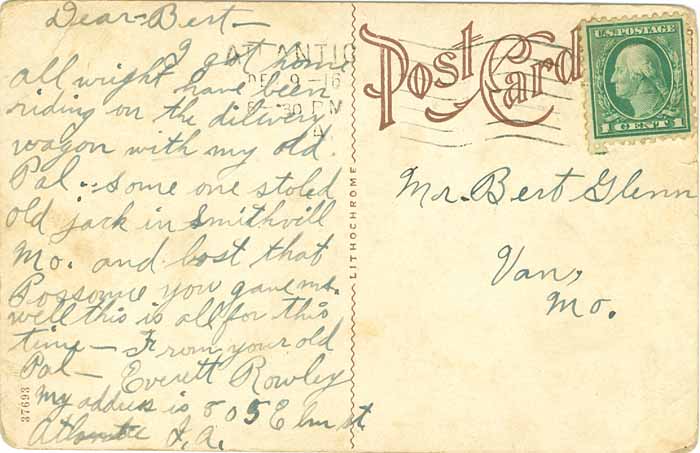 Dear-Bert-
I got home
all wright have been
riding on the dilivery
wagon with my old
Pal-- some one stoled
old jack in Smithvill
Mo. and lost that
Possome you gave me.
well this is all for this
time - From your old
Pal - Everett Rowley
My address is 805 Elm st
Atlantic I,A.
37693
ATLANTIC
DE 9 -16
30 PM
LITHOCHROME
Post Card
U.S. POSTAGE
1 CENT 1
Mr. Bert Glenn
Van,
Mo.